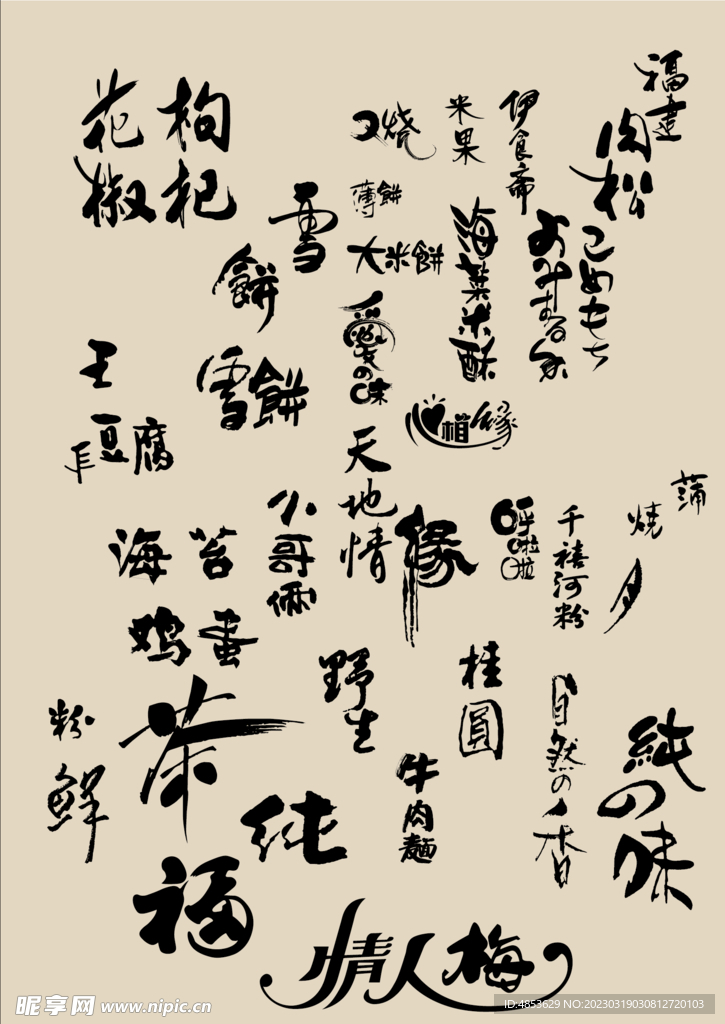 福建
肉松
伊食斋
米果
口烧
枸杞
花椒
薄餅
雪
餅
大米餅
海菜米酥
こめもち
愛の味
雪餅
王
豆腐
相缘
天地情
缘
小哥俩
呼啦啦
千禧河粉
蒲
燒
海苔
鸡蛋
野生
桂圓
自然の香
純の味
粉
鲜
茶
牛肉麵
纯
福
情人梅
昵享网 www.nipic.cn
ID:4853629 NO:20230319030812720103